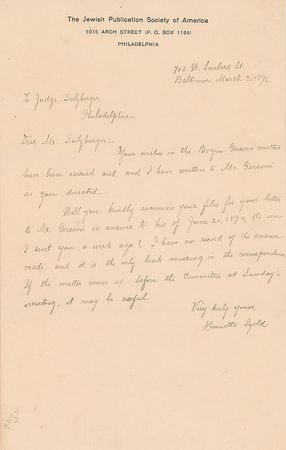 The Jewish Publication Society of America
1015 ARCH STREET (P. O. BOX 1164)
PHILADELPHIA
702 W. Lombard St.
Baltimore, March 3, 189
To Judge Sulzberger,
Philadelphia
Dear Mr. Sulzberger:-
Your wishes in the Gersoni matter
have been carried out, and I have written to Mr. Gersoni
as you directed.
Will you kindly examine your files for your letter
to Mr. Gersoni in answer to his of June 20, 1894, the one
I sent you a week ago? I have no record of the answer
made, and it is the only link missing in the correspondence.
If the matter comes up before the Committee at Sunday's
meeting, it may be useful.
Very truly yours,
Henrietta Szold